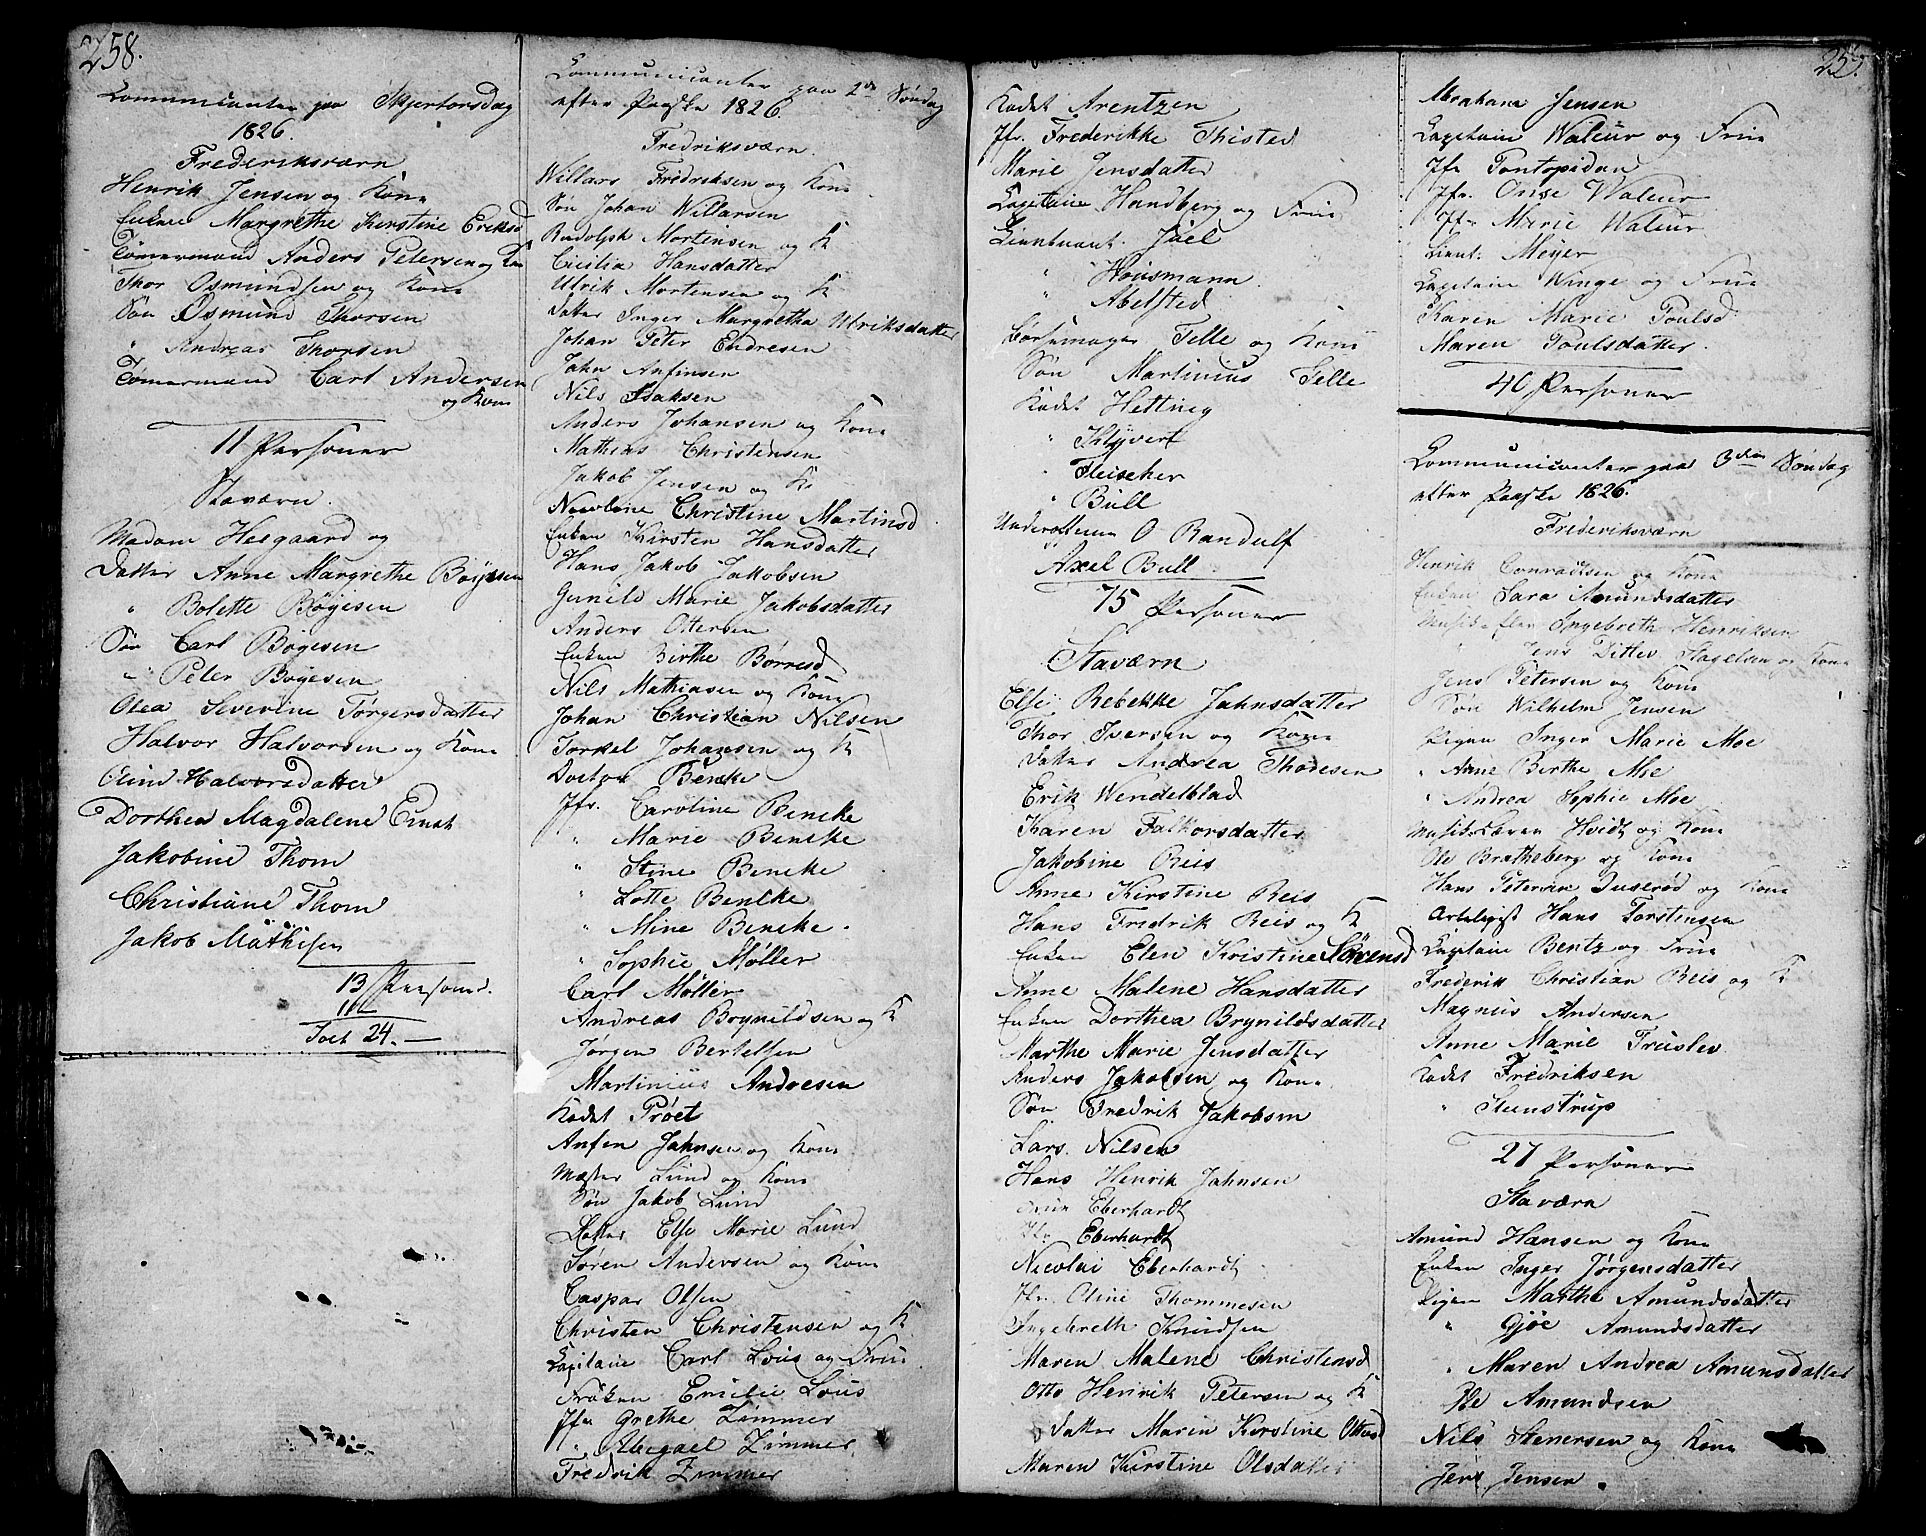 258.
Communicanter paa Skjertorsdag
1826.
Frederiksværn
Henrik Jensen og Kone
Enken Margrethe Kirstine Eriksd
Tømermand Anders Petersen og Kone
Thor Osmundsen og Kone
Søn Osmund Thorsen
" Andreas Thorsen
Tømermand Carl Andersen
og Kone
11 Personer
Staværn.
Madam Heegaard og
Datter Anne Margrethe Bøyesen
" Bolette Bøyesen
Søn Carl Bøyesen
" Peter Bøyesen
Olea Severine Torgersdatter
Halvor Halvorsen og Kone
Halvorsdatter
Dorthea Magdalene Ernst
Jakobine Thom
Christiane Thom
Jakob Mathisen
13 Personer.
11
Tot 24.
Communicanter paa 2den Søndag
efter Paaske 1826.
Fredriksværn.
Willars Fredriksen og Kone
Søn Johan Willarsen
Rudolph Mortensen og K
Cicilia Hansdatter
Ulrik Mortensen og K
Datter Inger Margretha Ulriksdatter
Johan Peter Endresen
Jahn Anfinsen
Nils Isaksen
Anders Johansen og Kone
Mathias Christensen
Jakob Jensen og K
Christine Martinsd
Enken Kirsten Hansdatter
Hans Jakob Jakobsen
Gunild Marie Jakobsdatter
Anders Ottersen
Enken Birthe Børresd
Nils Mathiasen og Kone
Johan Christian Nilsen
Torkel Johansen og K
Doctor Bencke
Jfr. Caroline Bencke
" Marie Bencke
" Stine Bencke
" Lotte Bencke
" Mine Bencke.
" Sophie Møller
Carl Møller
Andreas Brynildsen og K
Jørgen Bertelsen
Martinius Andresen
Kadet Prøet
Anfen Jahnsen og Kone
Mester Lund og Kone
Søn Jakob Lund
Datter Else Marie Lund
Søren Andersen og Kone
Caspar Olsen
Christen Christensen og K
Capitaine Carl Lous og Frue
Frøken Emilie Lous
Jfr Grethe Zimmer
" Abegael Zimmer
Fredrik Zimmer
259.
Kadet Arentzen
Jfr. Frederikke Thisted
Marie Jensdatter
Capitaine Handberg og Frue
Lieutnant Juel
" Housmann
" Abelsted
Telle og Kone
Søn Martinius Telle
Kadet Hettning
" Klyvert
" Fleischer
" Bull
O Randulf
Axel Bull
75 Personer
Staværn
Else Rebekke Jahnsdatter
Thor Iversen og Kone
Datter Andrea Thoresen
Erik Wendelblad
Karen Falkorsdatter
Jakobine Reis
Anne Kirstine Reis
Hans Fredrik Reis og K
Enken Elen Kristine Sørensd
Anne Malene Hansdatter
Enken Dorthea Brynildsdatter
Marthe Marie Jensdatter
Anders Jakobsen og Kone
Søn Fredrik Jakobsen
Lars Nilsen
Hans Henrik Jahnsen
Frue Eberhardt
Jfr. Eberhardt
Nicolai Eberhardt
Jfr. Oline Thommesen
Ingebreth Knudsen
Maren Malene Christensd
Otto Henrik Petersen og K
Datter Maren Kirstine Ottosd
Maren Kirstine Olsdatter
Abraham Jensen
Capitaine Waleur og Frue
Jfr Pontopidan
Jfr. Onse Waleur
Jfr Marie Waleur
Lieut. Meyer
Capitaine Winge og Frue
Karen Marie Poulsd
Maren Poulsdatter
40 Personer
Communicanter paa 3den Søndag
efter Paaske 1826.
Frederiksværn
Henrik Conradtsen og Kone
Enken Sara Amundsdatter
Ingebreth Henriksen
" Jens Ditlev Hagelsen og Kone
Jens Petersen og Kone
Søn Wilhelm Jensen
Pigen Inger Marie Moe
" Anne Birthe Moe
" Andrea Sophie Moe
Hvidt og Kone
Ole Bratheberg og Kone
Hans Petersen Duserød og Kone
Hans Torstensen
Capitaine Bentz og Frue
Frederik Christian Reis og K
Magnus Andersen
Anne Marie Truslev
Kadet Fredriksen
" Steenstrup
27 Personer
Staværn
Amund Hansen og Kone
Enken Inger Jørgensdatter
Pigen Marthe Amundsdatter
" Gjøe Amundsdatter
" Maren Andrea Amundsdatter
Ole Amundsen
Nils Stenersen og Kone
Jens Jensen.